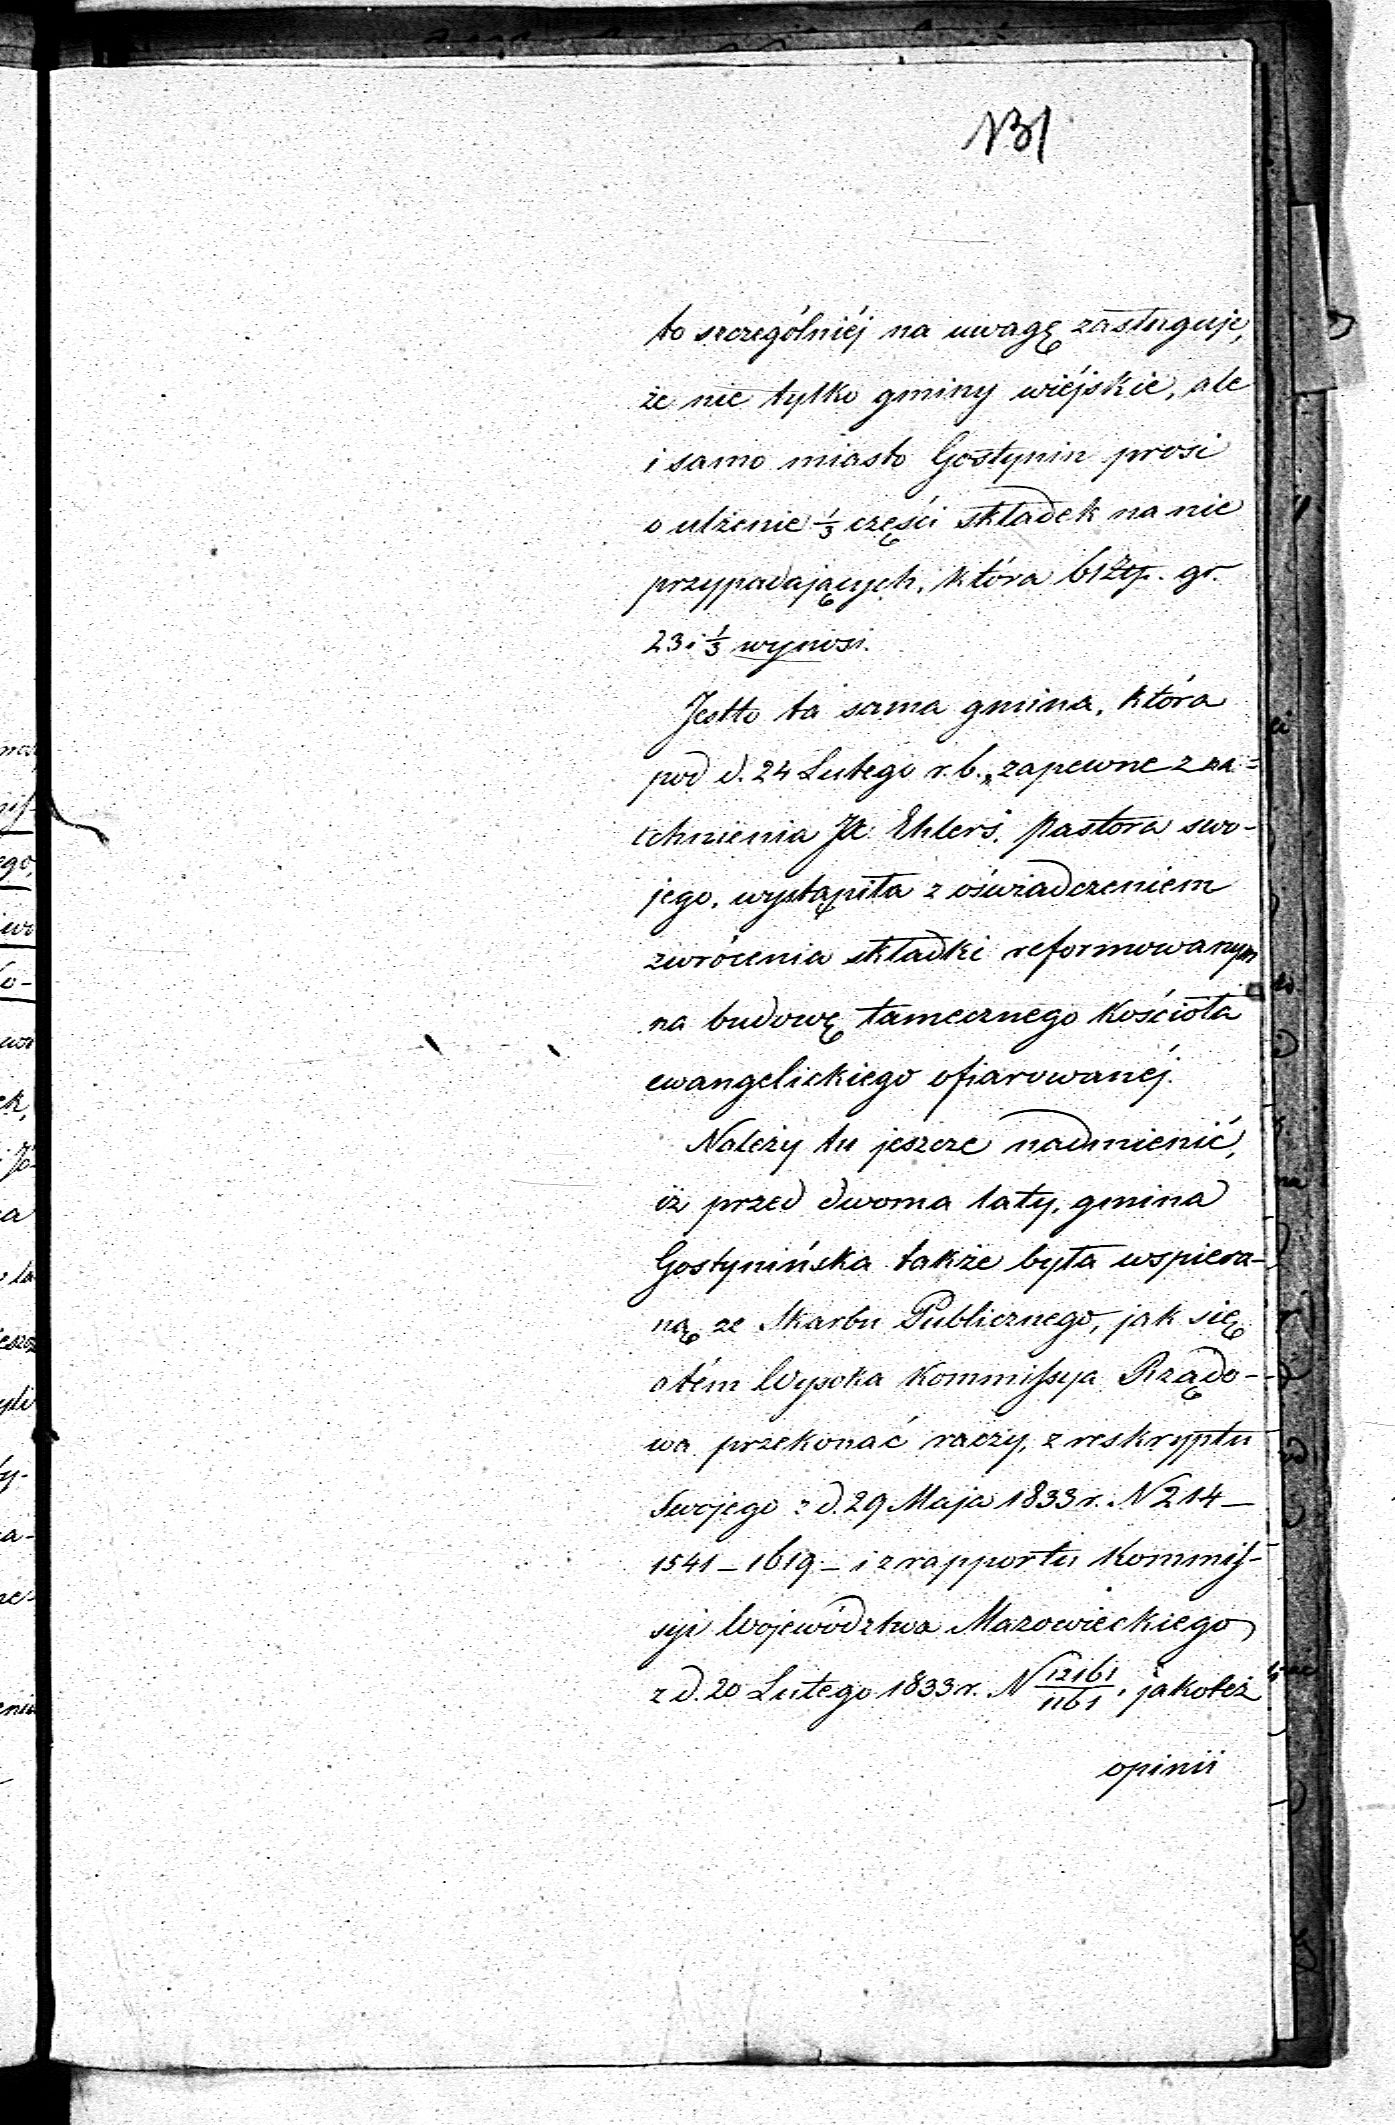 131
to szczególniéj na uwagę zasługuje,
że nie tylko gminy wiéjskie, ale
i samo miasto Gostynin prosi
o ulżenie ⅓ części składek na nie
przypadających, która 61 Złp. gr.
23 i ⅓ wynosi.
Jestto ta sama gmina, która
pod d. 24 Lutego r. b., zapewne z na=
tchnienia JX. Ehlers, Pastora swo-
jego, wystąpiła z oświadczeniem
zwrócenia składki reformowanym
na budowę tamecznego kościoła
ewangelickiego ofiarowanéj.
Należy tu jeszcze nadmienić,
iż przed dwoma laty, gmina
Gostynińska także była wspiera-
ną ze Skarbu Publicznego, jak się
o tém Wysoka Kommissya Rządo-
wa przekonać raczy, z reskryptu
Swojego z d. 29 Maja 1833 r. N 214 _
1541 _ 1619 _ i z rapportu Kommis-
syi Województwa Mazowieckiego
z d. 20 Lutego 1833 r. N 12161/1161, jakoteż
opinii